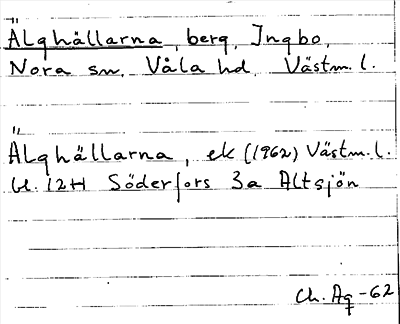 Älghällarna, berg, Ingbo,
Nora sn, Våla hd, Västm. l.
Älghällarna, ek (1962) Västm. l.
bl. 12H Söderfors 3a Altsjön
Ch. Ag -62